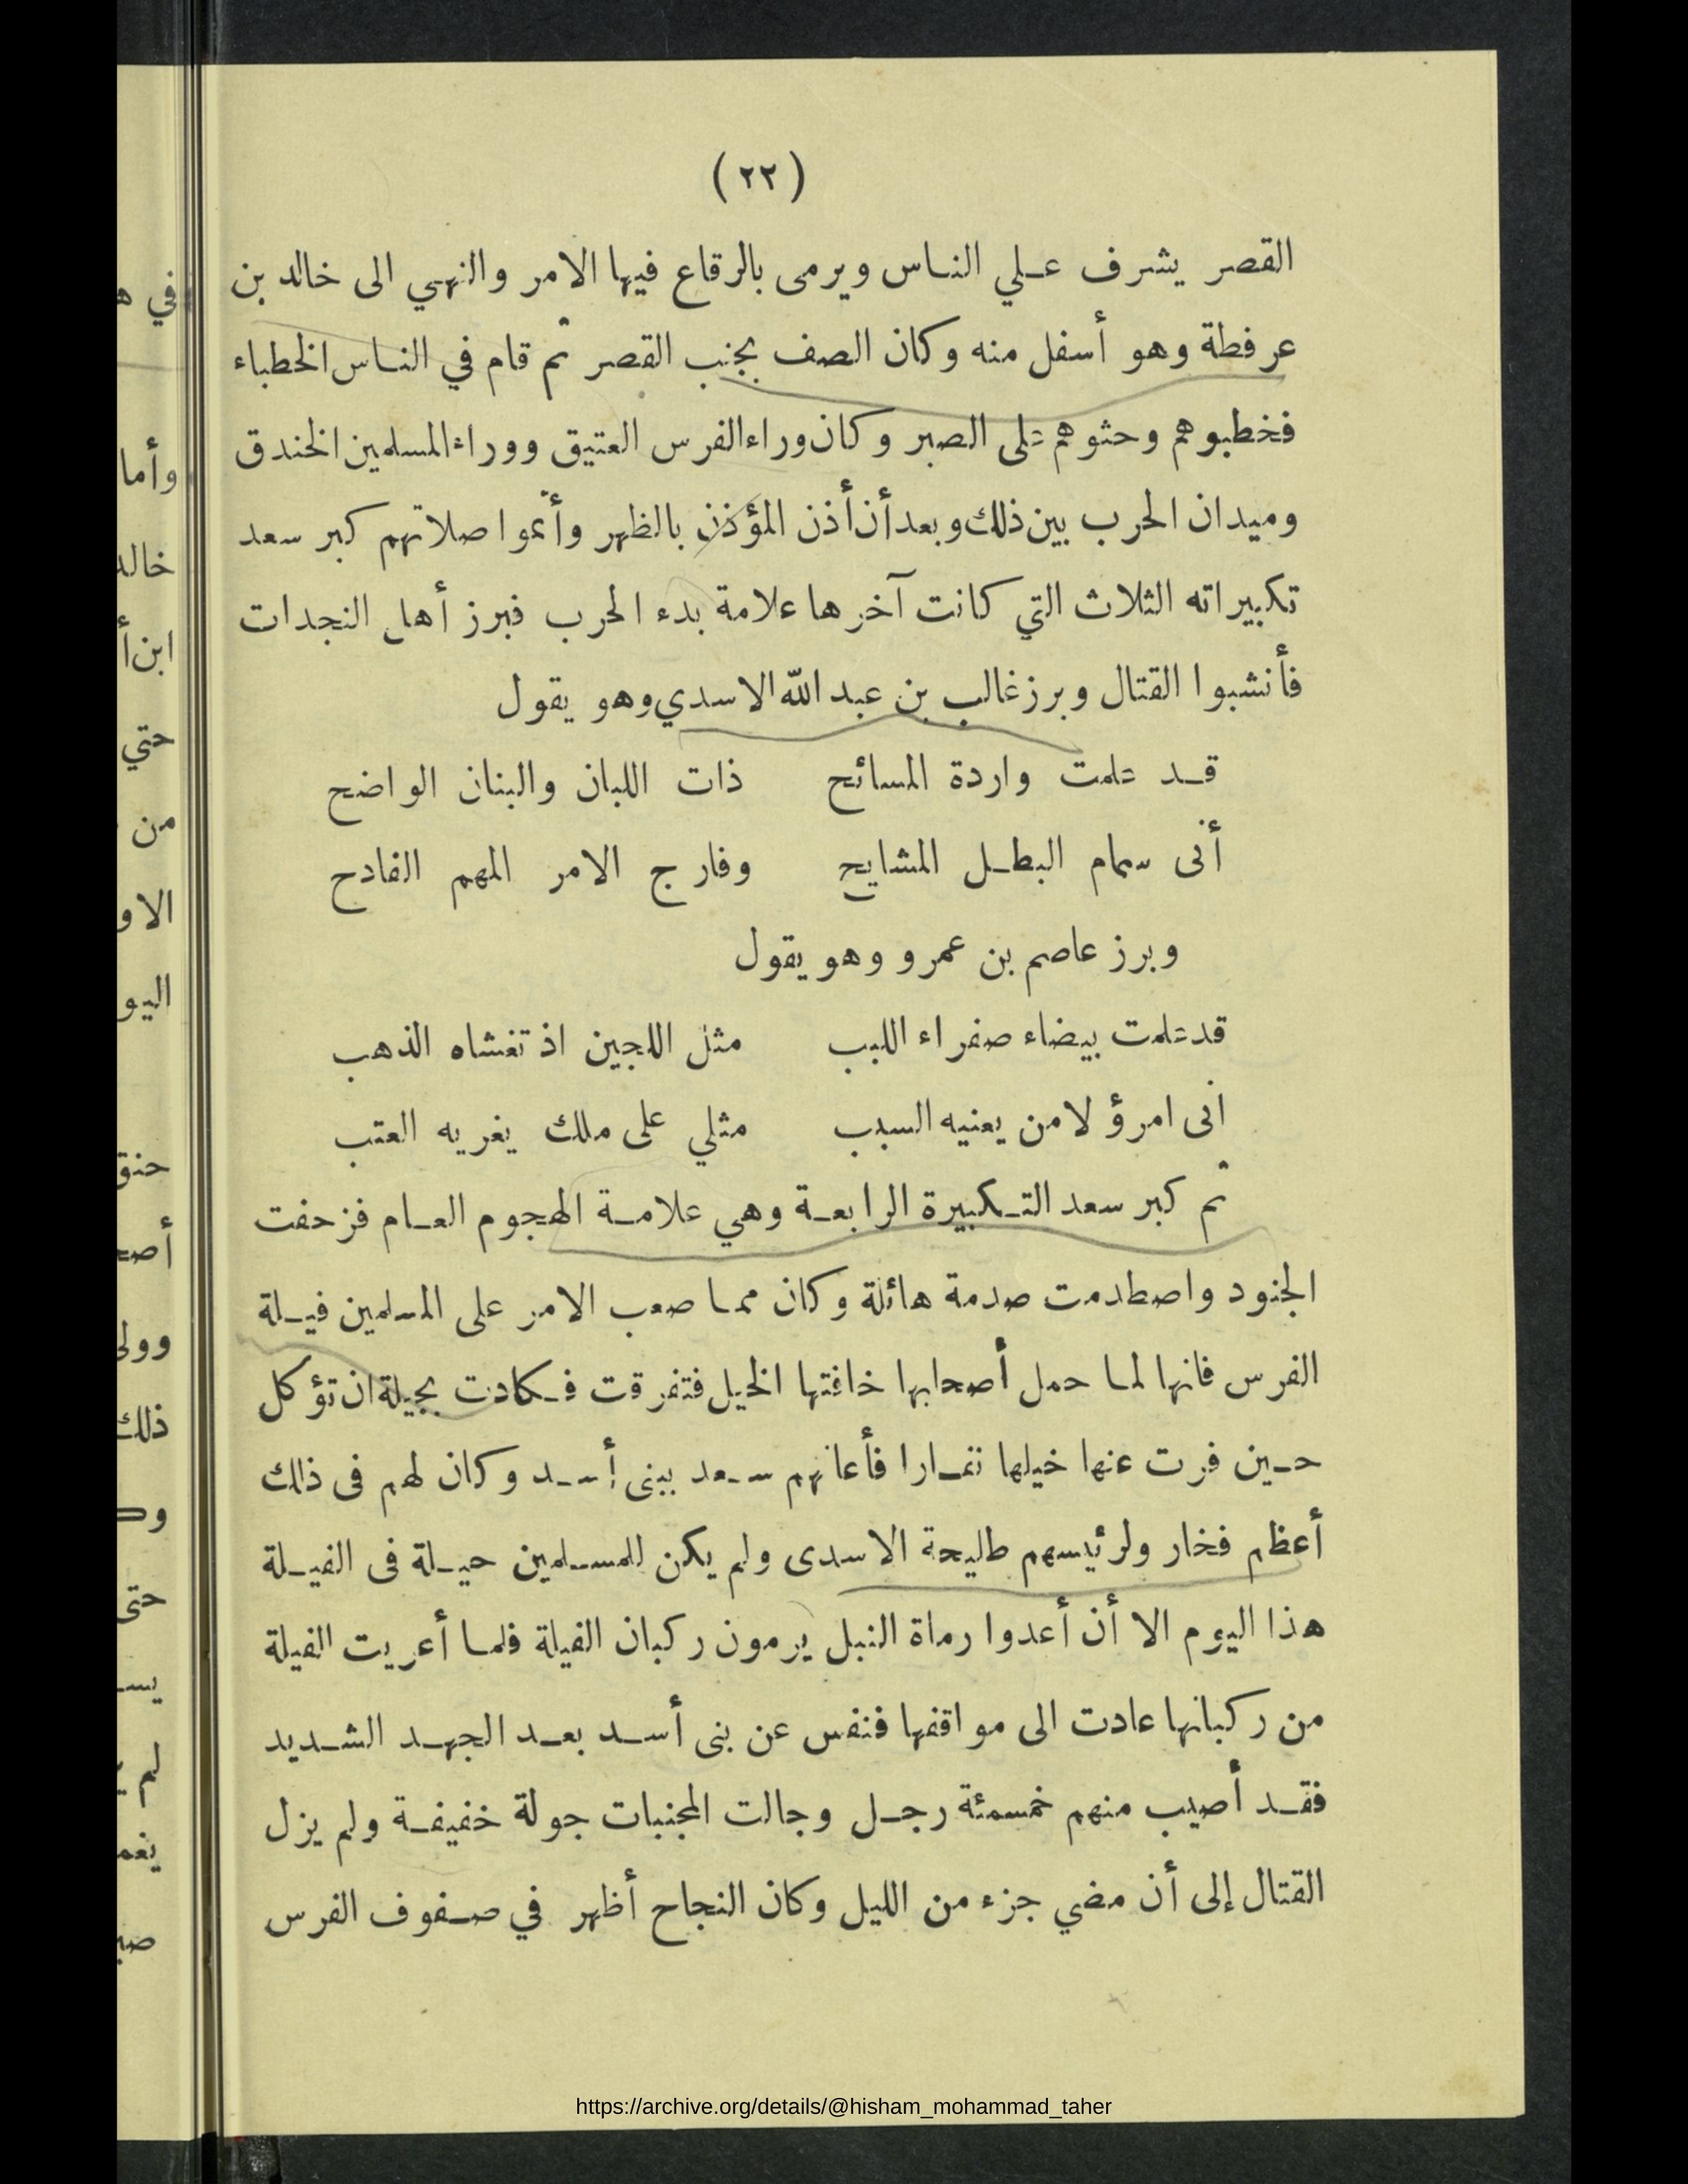 (٢٢)
القصر يشرف علي الناس ويرمى بالرقاع فيها الامر والنهي الى خالد بن
عرفطة وهو أسفل منه وكان الصف بجنب القصر ثم قام في الناس الخطباء
فخطبوهم وحثوهم على الصبر وكان وراء الفرس العتيق ووراء المسلمين الخندق
وميدان الحرب بين ذلك وبعد أن أذن المؤذن بالظهر وأتموا صلاتهم كبر سعد
تكبيراته الثلاث التي كانت آخرها علامة بدء الحرب فبرز أهل النجدات
فأنشبوا القتال وبرز غالب بن عبد الله الاسدي وهو يقول
قد علمت واردة المسائح ذات اللبان والبنان الواضح
أنى سمام البطل المشايح وفارج الامر المهم الفادح
وبرز عاصم بن عمرو وهو يقول
قد علمت بيضاء صفراء اللبب مثل اللجين اذ تغشاه الذهب
انى امرؤ لا من يعنيه السبب مثلي على ملك يغريه العتب
ثم كبر سعد التكبيرة الرابعة وهي علامة الهجوم العام فزحفت
الجنود واصطدمت صدمة هائلة وكان مما صعب الامر على المسلمين فيلة
الفرس فانها لما حمل أصحابها خافتها الخيل فتفرقت فكادت بجيلة ان تؤكل
حين فرت عنها خيلها نفارا فأعانهم سعد ببنى أسد وكان لهم فى ذلك
أعظم فخار ولرئيسهم طليحة الاسدى ولم يكن للمسلمين حيلة فى الفيلة
هذا اليوم الا أن أعدوا رماة النبل يرمون ركبان الفيلة فلما أعريت الفيلة
من ركبانها عادت الى مواقفها فنفس عن بنى أسد بعد الجهد الشديد
فقد أصيب منهم خمسمئة رجل وجالت المجنبات جولة خفيفة ولم يزل
القتال إلى أن مضي جزء من الليل وكان النجاح أظهر في صفوف الفرس
https://archive.org/details/@hisham_mohammad_taher